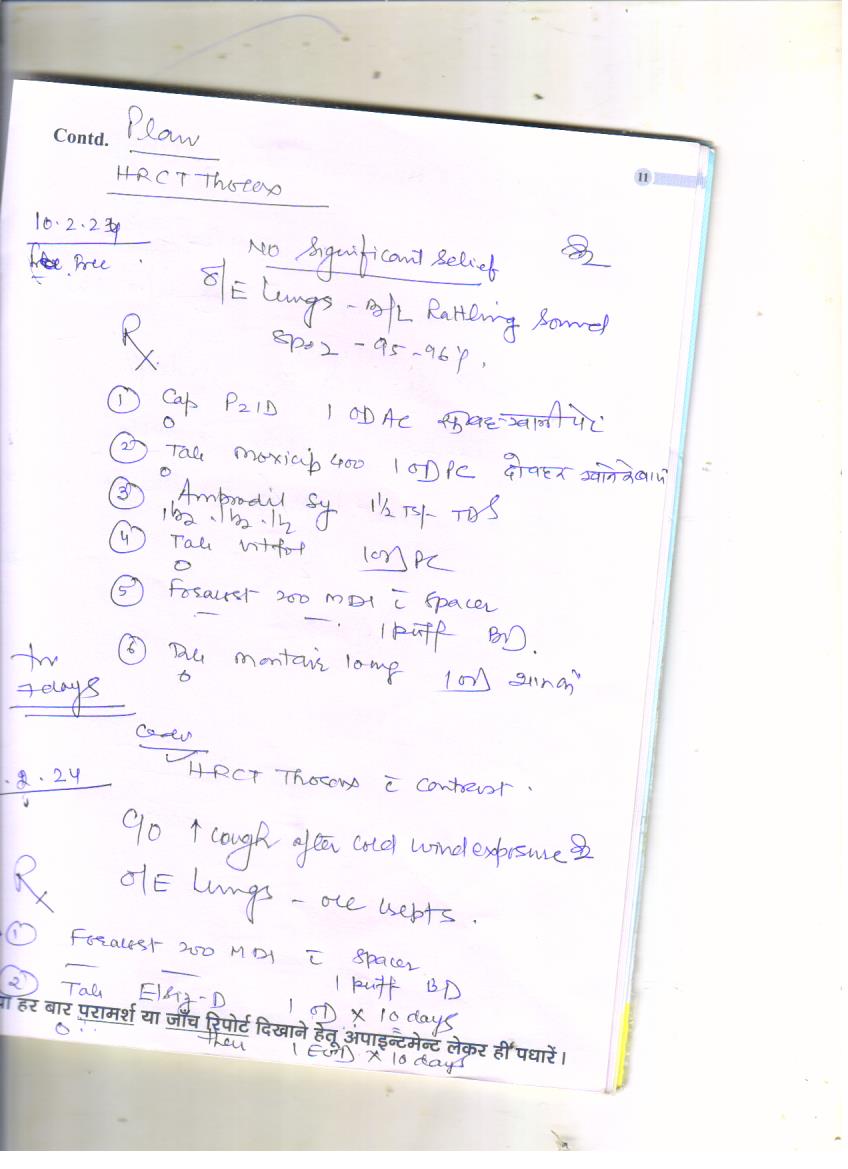 Contd. Plan
HRCT Thorax
11
10.2.24
No significant relief
O/E Lungs - B/L Rattling Sound
SpO2 - 95-96%.
Rx
① Cap PzID 1 OD AC सुबह खाली पेट
② Tab moxicip 400 1 OD PC दोपहर खाने के बाद
③ Ambrodil Sy 1½ TSf TDS
1½ . 1½ . 1½
④ Tab 1 OD PC
⑤ Foracort 200 MDI c̄ spacer
1 puff BD.
⑥ Tab montair 10mg 1 OD शाम को
7 days
HRCT Thorax c̄ contrast .
.2.24
C/O ↑ cough after cold wind exposure
O/E Lungs - occ crepts .
Rx
① Foracort 200 MDI c̄ spacer
1 puff BD
② Tab 1 OD × 10 days
हर बार परामर्श या जाँच रिपोर्ट दिखाने हेतू अंपाइन्टमेन्ट लेकर ही पधारें।
then 1 EOD × 10 days